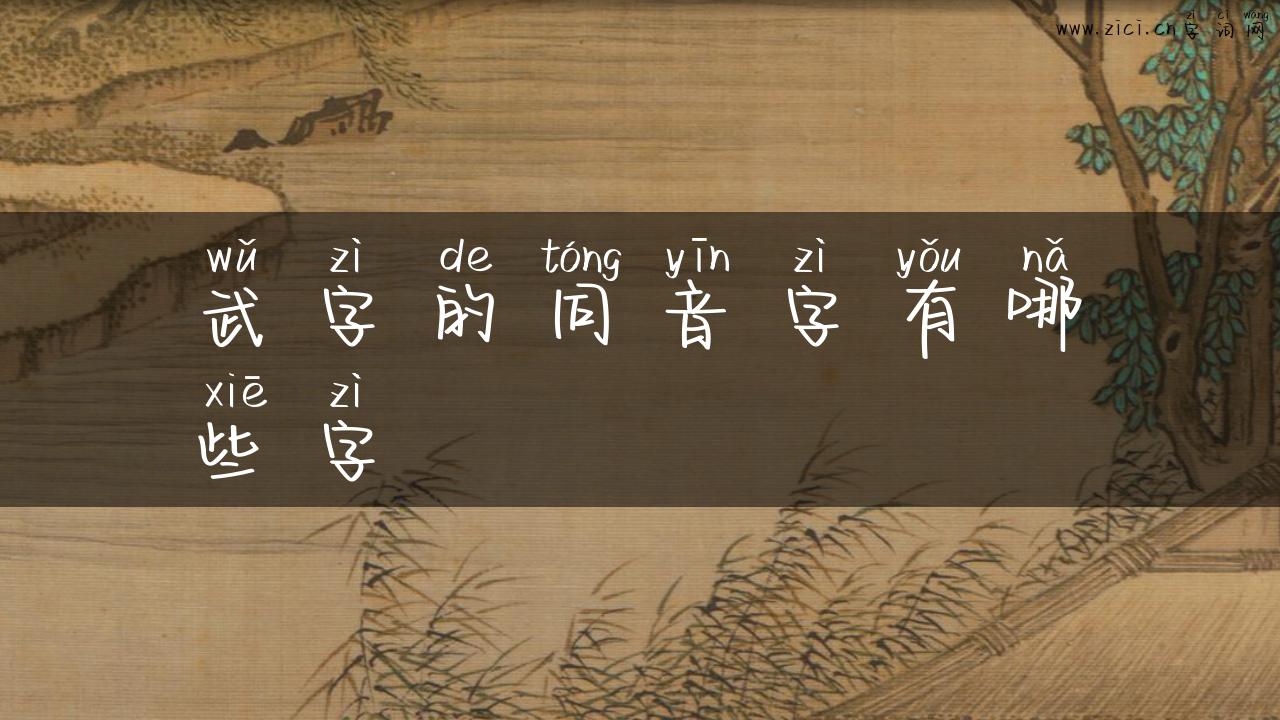 zì cí wǎng
www.zici.cn字词网
wǔ zì de tóng yīn zì yǒu nǎ
武字的同音字有哪
xiē zì
些字